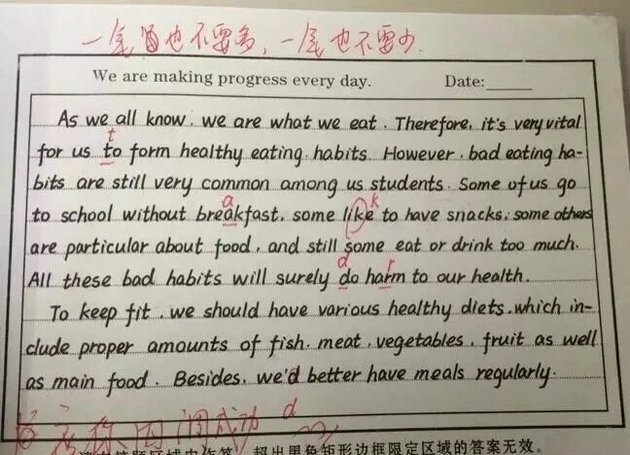 一尾也不要多，一尾也不要少.
We are making progress every day. Date:
As we all know, we are what we eat. Therefore, it's very vital
t
for us to form healthy eating habits. However, bad eating ha-
bits are still very common among us students. Some of us go
a k
to school without breakfast, some like to have snacks, some others
are particular about food, and still some eat or drink too much.
d r
All these bad habits will surely do harm to our health.
To keep fit, we should have various healthy diets, which in-
clude proper amounts of fish, meat, vegetables, fruit as well
as main food. Besides, we'd better have meals regularly.
成功 d
答题区域内作答，超出黑色矩形边框限定区域的答案无效。